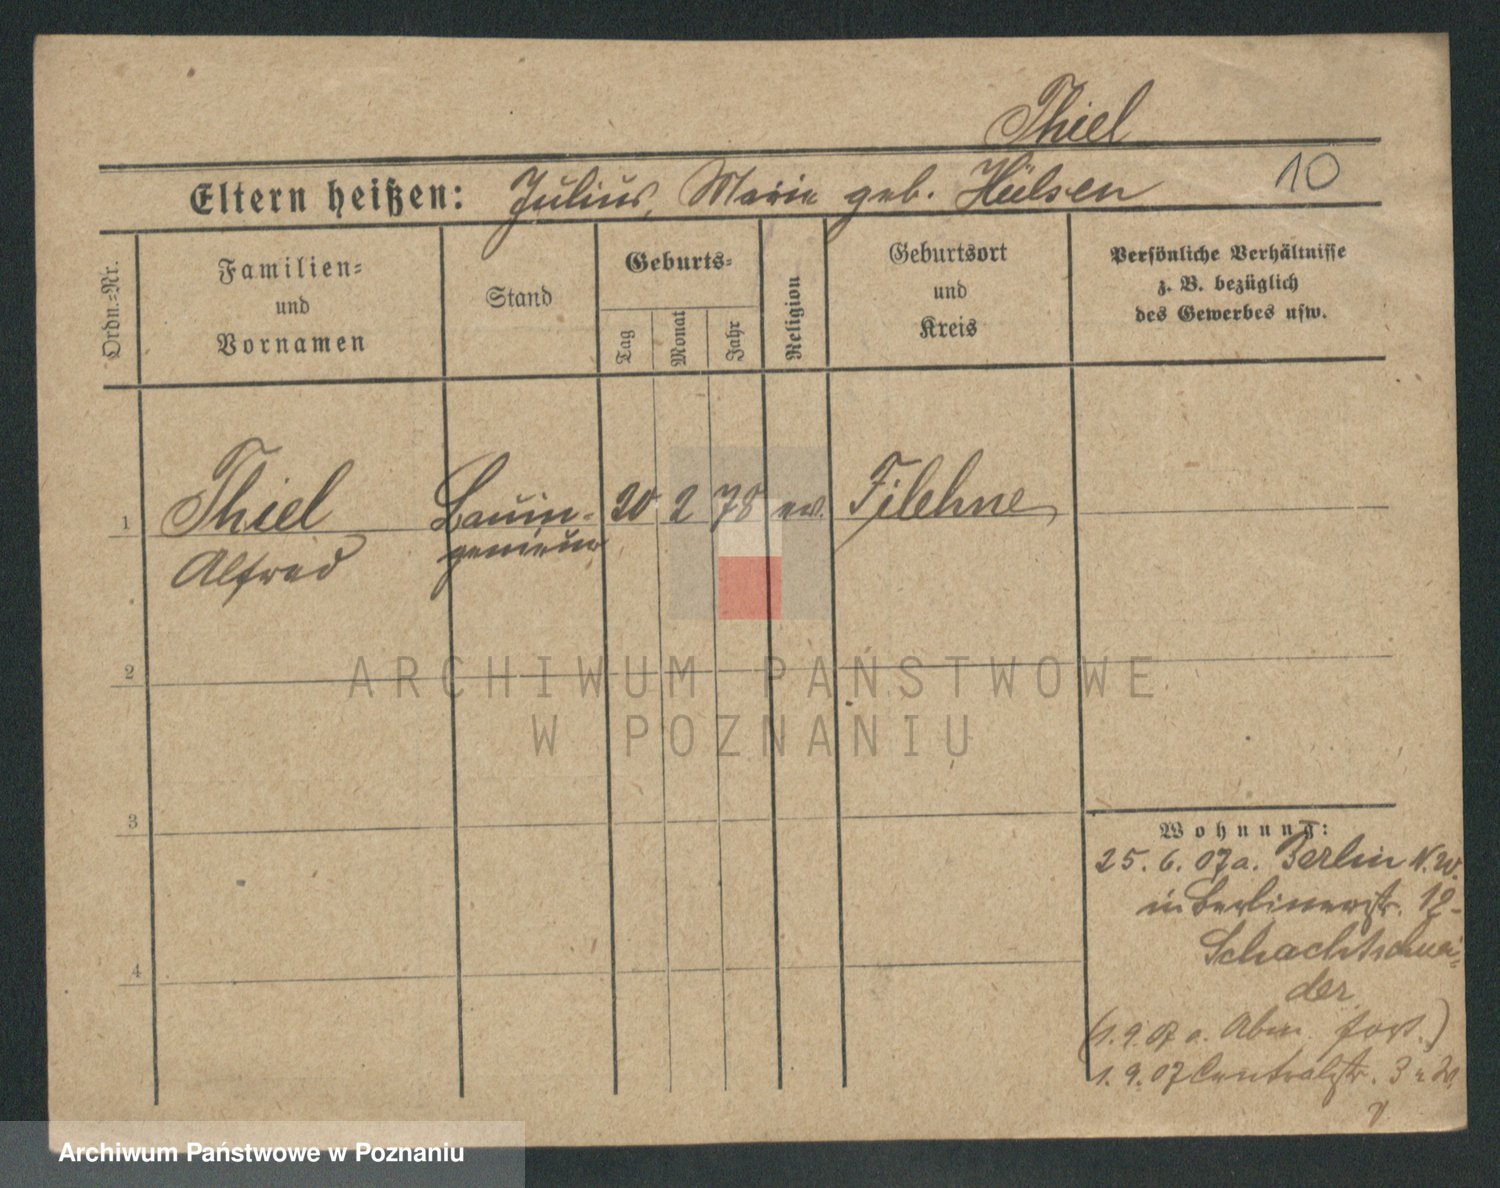 Thiel
10
Eltern heißen: Julius, Marie geb. Hülsen
Ordn.=Nr.
Familien=
und
Vornamen
Stand
Geburts=
Tag
Monat
Jahr
Religion
Geburtsort
und
Kreis
Persönliche Verhältnisse
z. B. bezüglich
des Gewerbes usw.
1
Thiel
Alfred
Bauin=
genieur
20 2 78 ev. Filehne
2
3
4
Wohnung:
25. 6. 07 a. Berlin N.W.
in Berlinerstr. 12
Schachtschnei=
der
(1.9.07 a. fort.)
1. 9. 07 Centralstr. 3
ARCHIWUM PAŃSTWOWE
W POZNANIU
Archiwum Państwowe w Poznaniu